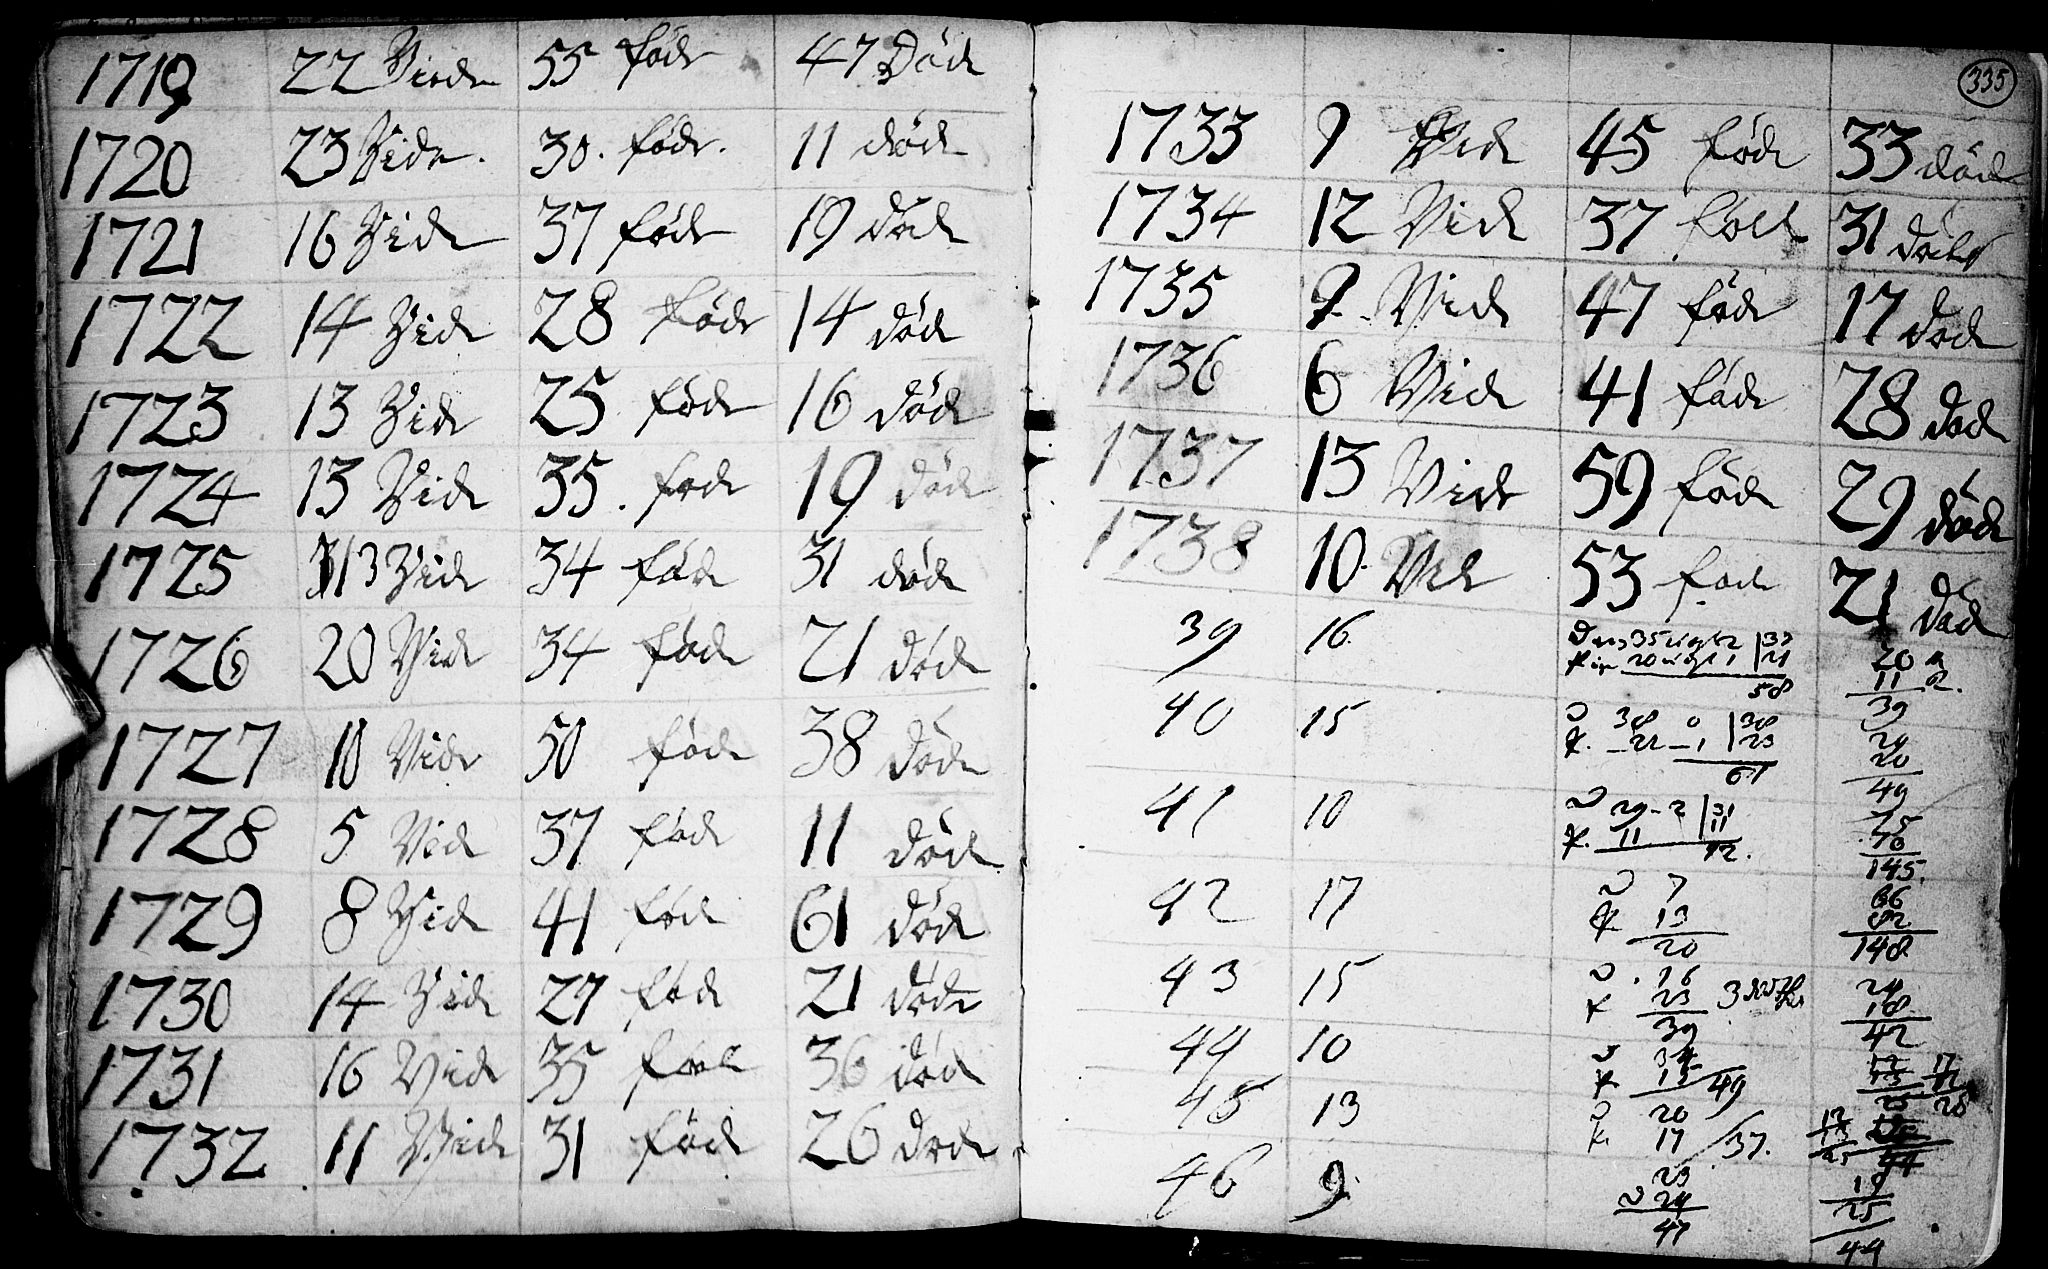 1719 22 Viede 55 føde 47 Døde
1720 23 Vide. 30. føde. 11 død
1721 16 Vide 37 føde 19 død
1722 14 Vide 28 føde 14 død
1723 13 Vide 25 føde 16 død
1724 13 Vide 35. føde 19 død
1725 13 Vide 34 føde 31 død
1726 20 Vide 34 føde 21 død
1727 10 Vide 50 føde 38 døde
1728 5 Vid 37 føde 11 død
1729 8 Vid 41 fød 61 død
1730 14 Vide 27 fød 21 døde
1731 16 Vide 35 fød 36 død
1732 11 Vide 31 fød 26 død
335
1733 9 Vid 45 føde 33 død
1734 12 Vid 37 fød 31
1735 9 Vide 47 føde 17 død
1736 6 Vide 41 føde 28 død
1737 13 Vide 59 føde 29 død
1738 10. Vid 53 føde 21 død
39 16
58
39
40 15
38 0 | 38
22 1 | 23
61
29
20
49
41 10
29 - 2 | 31
11 | 11
42.
75
70
145.
42 17
7
13
20
66
82
148.
43 15
16
23 3
39
24
18
42
44 10
34
15 49
45 13
20
17 37.
46 9
23
24
47
19
25
44